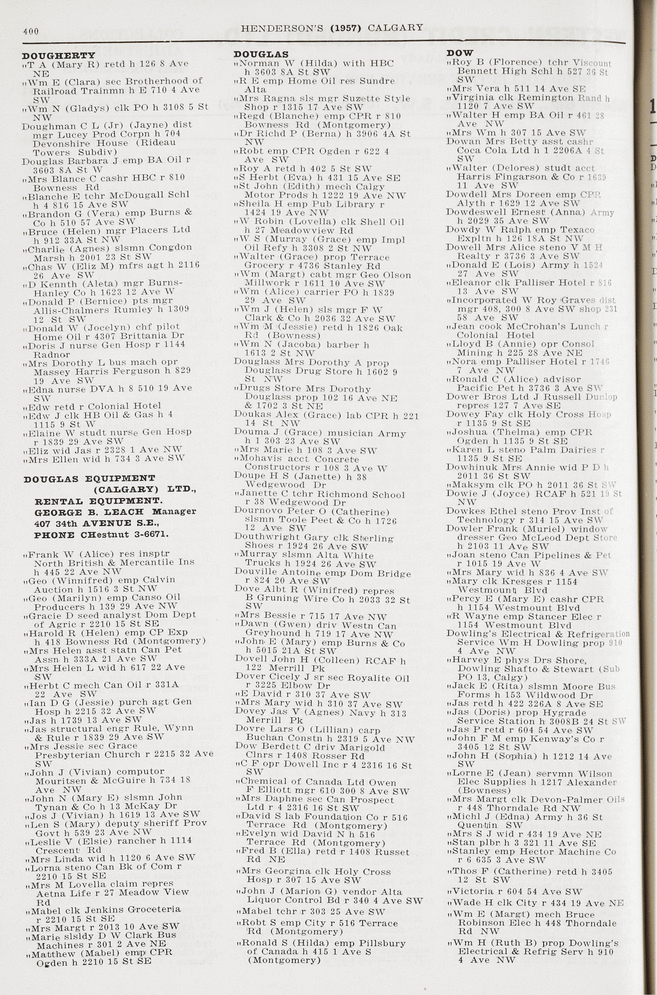 400
HENDERSON'S (1957) CALGARY
DOUGHERTY
„T A (Mary R) retd h 126 8 Ave
NE
„Wm E (Clara) sec Brotherhood of
Railroad Trainmn h E 710 4 Ave
SW
„Wm N (Gladys) clk PO h 3108 5 St
NW
Doughman C L (Jr) (Jayne) dist
mgr Lucey Prod Corpn h 704
Devonshire House (Rideau
Towers Subdiv)
Douglas Barbara J emp BA Oil r
3603 8A St W
„Mrs Blance C cashr HBC r 810
Bowness Rd
„Blanche E tchr McDougall Schl
h 4 816 15 Ave SW
„Brandon G (Vera) emp Burns &
Co h 510 57 Ave SW
„Bruce (Helen) mgr Placers Ltd
h 912 33A St NW
„Charlie (Agnes) slsmn Congdon
Marsh h 2001 23 St SW
„Chas W (Eliz M) mfrs agt h 2116
26 Ave SW
„D Kennth (Aleta) mgr Burns-
Hanley Co h 1623 12 Ave W
„Donald P (Bernice) pts mgr
Allis-Chalmers Rumley h 1309
12 St SW
„Donald W (Jocelyn) chf pilot
Home Oil r 4307 Brittania Dr
„Doris J nurse Gen Hosp r 1144
Radnor
„Mrs Dorothy L bus mach opr
Massey Harris Ferguson h 829
19 Ave SW
„Edna nurse DVA h 8 510 19 Ave
SW
„Edw retd r Colonial Hotel
„Edw J clk HB Oil & Gas h 4
1115 9 St W
„Elaine W studt nurse Gen Hosp
r 1839 29 Ave SW
„Eliz wid Jas r 2328 1 Ave NW
„Mrs Ellen wid h 734 3 Ave SW
DOUGLAS EQUIPMENT
(CALGARY) LTD.,
RENTAL EQUIPMENT.
GEORGE B. LEACH Manager
407 34th AVENUE S.E.,
PHONE CHestnut 3-6671.
„Frank W (Alice) res insptr
North British & Mercantile Ins
h 445 22 Ave NW
„Geo (Winnifred) emp Calvin
Auction h 1516 3 St NW
„Geo (Marilyn) emp Canso Oil
Producers h 139 29 Ave NW
„Gracie D seed analyst Dom Dept
of Agric r 2210 15 St SE
„Harold R (Helen) emp CP Exp
h 418 Bowness Rd (Montgomery)
„Mrs Helen asst statn Can Pet
Assn h 333A 21 Ave SW
„Mrs Helen L wid h 617 22 Ave
SW
„Herbt C mech Can Oil r 331A
22 Ave SW
„Ian D G (Jessie) purch agt Gen
Hosp h 2215 32 Ave SW
„Jas h 1739 13 Ave SW
„Jas structural engr Rule, Wynn
& Rule r 1839 29 Ave SW
„Mrs Jessie sec Grace
Presbyterian Church r 2215 32 Ave
SW
„John J (Vivian) computor
Mouritsen & McGuire h 734 18
Ave NW
„John N (Mary E) slsmn John
Tynan & Co h 13 McKay Dr
„Jos J (Vivian) h 1619 13 Ave SW
„Len S (Mary) deputy sheriff Prov
Govt h 539 23 Ave NW
„Leslie V (Elsie) rancher h 1114
Crescent Rd
„Mrs Linda wid h 1120 6 Ave SW
„Lorna steno Can Bk of Com r
2210 15 St SE
„Mrs M Lovella claim repres
Aetna Life r 27 Meadow View
Rd
„Mabel clk Jenkins Groceteria
r 2210 15 St SE
„Mrs Margt r 2013 10 Ave SW
„Marie slsldy D W Clark Bus
Machines r 301 2 Ave NE
„Matthew (Mabel) emp CPR
Ogden h 2210 15 St SE
DOUGLAS
„Norman W (Hilda) with HBC
h 3603 8A St SW
„R E emp Home Oil res Sundre
Alta
„Mrs Ragna sls mgr Suzette Style
Shop r 1315 17 Ave SW
„Regd (Blanche) emp CPR r 810
Bowness Rd (Montgomery)
„Dr Richd P (Berna) h 3906 4A St
NW
„Robt emp CPR Ogden r 622 4
Ave SW
„Roy A retd h 402 5 St SW
„S Herbt (Eva) h 431 15 Ave SE
„St John (Edith) mech Calgy
Motor Prods h 1222 19 Ave NW
„Sheila H emp Pub Library r
1424 19 Ave NW
„W Robin (Lovella) clk Shell Oil
h 27 Meadowview Rd
„W S (Murray (Grace) emp Impl
Oil Refy h 3308 2 St NW
„Walter (Grace) prop Terrace
Grocery r 4736 Stanley Rd
„Wm (Margt) cabt mgr Geo Olson
Millwork r 1611 10 Ave SW
„Wm (Alice) carrier PO h 1839
29 Ave SW
„Wm J (Helen) sls mgr F W
Clark & Co h 2036 32 Ave SW
„Wm M (Jessie) retd h 1826 Oak
Rd (Bowness)
„Wm N (Jacoba) barber h
1613 2 St NW
Douglass Mrs Dorothy A prop
Douglass Drug Store h 1602 9
St NW
„Drugs Store Mrs Dorothy
Douglass prop 102 16 Ave NE
& 1702 3 St NE
Doukas Alex (Grace) lab CPR h 221
14 St NW
Douma J (Grace) musician Army
h 1 303 23 Ave SW
„Mrs Marie h 108 3 Ave SW
„Mohavis acct Concrete
Constructors r 108 3 Ave W
Doupe H S (Janette) h 38
Wedgewood Dr
„Janette C tchr Richmond School
r 38 Wedgewood Dr
Dournovo Peter O (Catherine)
slsmn Toole Peet & Co h 1726
12 Ave SW
Douthwright Gary clk Sterling
Shoes r 1924 26 Ave SW
„Murray slsmn Alta White
Trucks h 1924 26 Ave SW
Douville Antoine emp Dom Bridge
r 824 20 Ave SW
Dove Albt R (Winifred) repres
B Gruning Wire Co h 2033 32 St
SW
„Mrs Bessie r 715 17 Ave NW
„Dawn (Gwen) driv Westn Can
Greyhound h 719 17 Ave NW
„John E (Mary) emp Burns & Co
h 5015 21A St SW
Dovell John H (Colleen) RCAF h
122 Merrill Pk
Dover Cicely J sr sec Royalite Oil
r 3225 Elbow Dr
„E David r 310 37 Ave SW
„Mrs Mary wid h 310 37 Ave SW
Dovey Jas V (Agnes) Navy h 313
Merrill Pk
Dovre Lars O (Lillian) carp
Buchan Constn h 2319 5 Ave NW
Dow Berdett C driv Marigold
Clnrs r 1408 Rosser Rd
„C F opr Dowell Inc r 4 2316 16 St
SW
„Chemical of Canada Ltd Owen
F Elliott mgr 610 300 8 Ave SW
„Mrs Daphne sec Can Prospect
Ltd r 4 2316 16 St SW
„David S lab Foundation Co r 516
Terrace Rd (Montgomery)
„Evelyn wid David N h 516
Terrace Rd (Montgomery)
„Fred B (Ella) retd r 1408 Russet
Rd NE
„Mrs Georgina clk Holy Cross
Hosp r 307 15 Ave SW
„John J (Marion G) vendor Alta
Liquor Control Bd r 340 4 Ave SW
„Mabel tchr r 303 25 Ave SW
„Robt S emp City r 516 Terrace
Rd (Montgomery)
„Ronald S (Hilda) emp Pillsbury
of Canada h 415 1 Ave S
(Montgomery)
DOW
„Roy B (Florence) tchr Viscount
Bennett High Schl h 527 36 St
SW
„Mrs Vera h 511 14 Ave SE
„Virginia clk Remington Rand h
1120 7 Ave SW
„Walter H emp BA Oil r 461 28
Ave NW
„Mrs Wm h 307 15 Ave SW
Dowan Mrs Betty asst cashr
Coca Cola Ltd h 1 2206A 4 St
SW
„Walter (Delores) studt acct
Harris Pingarson & Co r 1639
11 Ave SW
Dowdell Mrs Doreen emp CPR
Alyth r 1629 12 Ave SW
Dowdeswell Ernest (Anna) Army
h 2029 35 Ave SW
Dowdy W Ralph emp Texaco
Expltn h 126 18A St NW
Dowell Mrs Alice steno V M H
Realty r 3736 3 Ave SW
„Donald E (Lois) Army h 1524
27 Ave SW
„Eleanor clk Palliser Hotel r 816
13 Ave SW
„Incorporated W Roy Graves dist
mgr 408, 300 8 Ave SW shop 231
58 Ave SW
„Jean cook McCrohan's Lunch r
Colonial Hotel
„Lloyd B (Annie) opr Consol
Mining h 225 28 Ave NE
„Nora emp Palliser Hotel r 1746
7 Ave NW
„Ronald C (Alice) advisor
Pacific Pet h 3736 3 Ave SW
Dower Bros Ltd J Russell Dunlop
repres 127 7 Ave SE
Dowey Fay clk Holy Cross Hosp
r 1135 9 St SE
„Joshua (Thelma) emp CPR
Ogden h 1135 9 St SE
„Karen L steno Palm Dairies r
1135 9 St SE
Dowhinuk Mrs Annie wid P D h
2011 36 St SW
„Maksym clk PO r 2011 36 St SW
Dowie J (Joyce) RCAF h 521 19 St
NW
Dowkes Ethel steno Prov Inst of
Technology r 314 15 Ave SW
Dowler Frank (Muriel) window
dresser Geo McLeod Dept Store
h 2103 11 Ave SW
„Joan steno Can Pipelines & Pet
r 1015 19 Ave W
„Mrs Mary wid h 836 4 Ave SW
„Mary clk Kresges r 1154
Westmount Blvd
„Percy E (Mary E) cashr CPR
h 1154 Westmount Blvd
„R Wayne emp Stancer Elec r
1154 Westmount Blvd
Dowling's Electrical & Refrigeration
Service Wm H Dowling prop 910
4 Ave NW
„Harvey E phys Drs Shore,
Dowling Shafto & Stewart (Sub
PO 13, Calgy)
„Jack E (Rita) slsmn Moore Bus
Forms h 153 Wildwood Dr
„Jas retd h 422 326A 8 Ave SE
„Jas (Doris) prop Hygrade
Service Station h 3008B 24 St SW
„Jas P retd r 604 54 Ave SW
„John F M emp Kenway's Co r
3405 12 St SW
„John H (Sophia) h 1212 14 Ave
SW
„Lorne E (Jean) servmn Wilson
Elec Supplies h 1217 Alexander
(Bowness)
„Mrs Margt clk Devon-Palmer Oils
r 448 Thorndale Rd NW
„Michl J (Edna) Army h 36 St
Quentin SW
„Mrs S J wid r 434 19 Ave NE
„Stan plbr h 3 321 11 Ave SE
„Stanley emp Hector Machine Co
r 6 635 3 Ave SW
„Thos F (Catherine) retd h 3405
12 St SW
„Victoria r 604 54 Ave SW
„Wade H clk City r 434 19 Ave NE
„Wm E (Margt) mech Bruce
Robinson Elec h 448 Thorndale
Rd NW
„Wm H (Ruth B) prop Dowling's
Electrical & Refrig Serv h 910
4 Ave NW